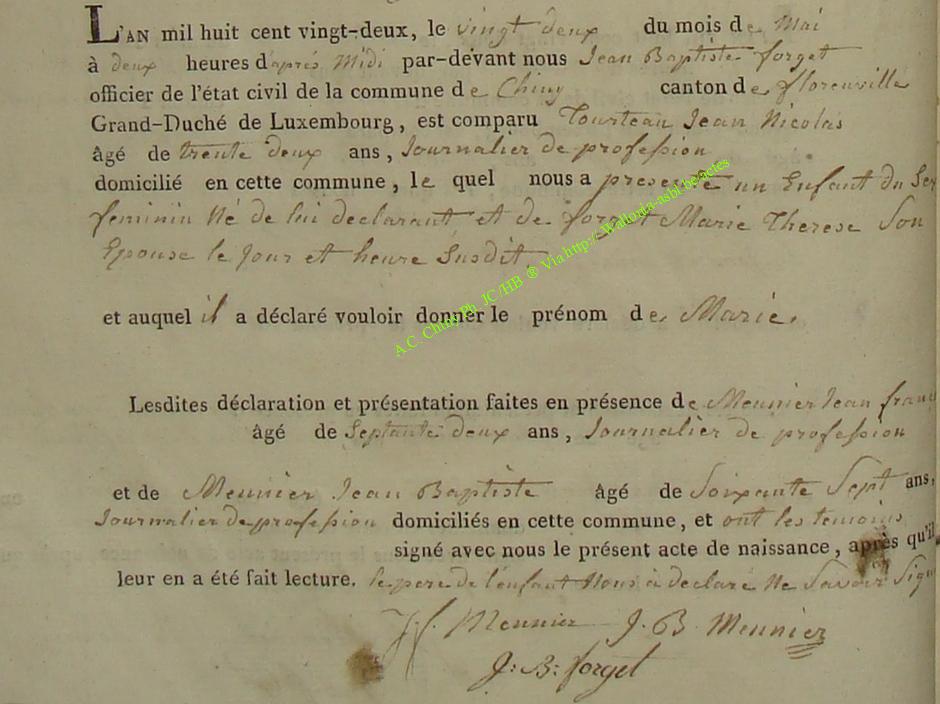 L'AN mil huit cent vingt-deux, le vingt deux du mois de Mai
à deux heures d'après Midi par-devant nous Jean Baptiste forget
officier de l'état civil de la commune de Chiny canton de florenville
Grand-Duché de Luxembourg, est comparu Tourteau Jean Nicolas
âgé de trente deux ans, Journalier de profession
domicilié en cette commune, le quel nous a presenté un Enfant du Sex
feminin Né de lui declarant et de forget Marie Therese Son
Epouse le Jour et heure Susdit.
et auquel il a déclaré vouloir donner le prénom de Marie.
A.C Chiny Ph JC/HB ® Via http:-Wallonia-asbl-be-actes
Lesdites déclaration et présentation faites en présence de Meunier Jean franç
âgé de Septante deux ans, Journalier de profession
et de Meunier Jean Baptiste âgé de Soixante Sept ans,
Journalier de profession domiciliés en cette commune, et ont les temoins
signé avec nous le présent acte de naissance, après qu'il
leur en a été fait lecture. le pere de l'enfant Nous à declaré Ne Savoir Sign
Meunier J. B Meunier
J: B: forget